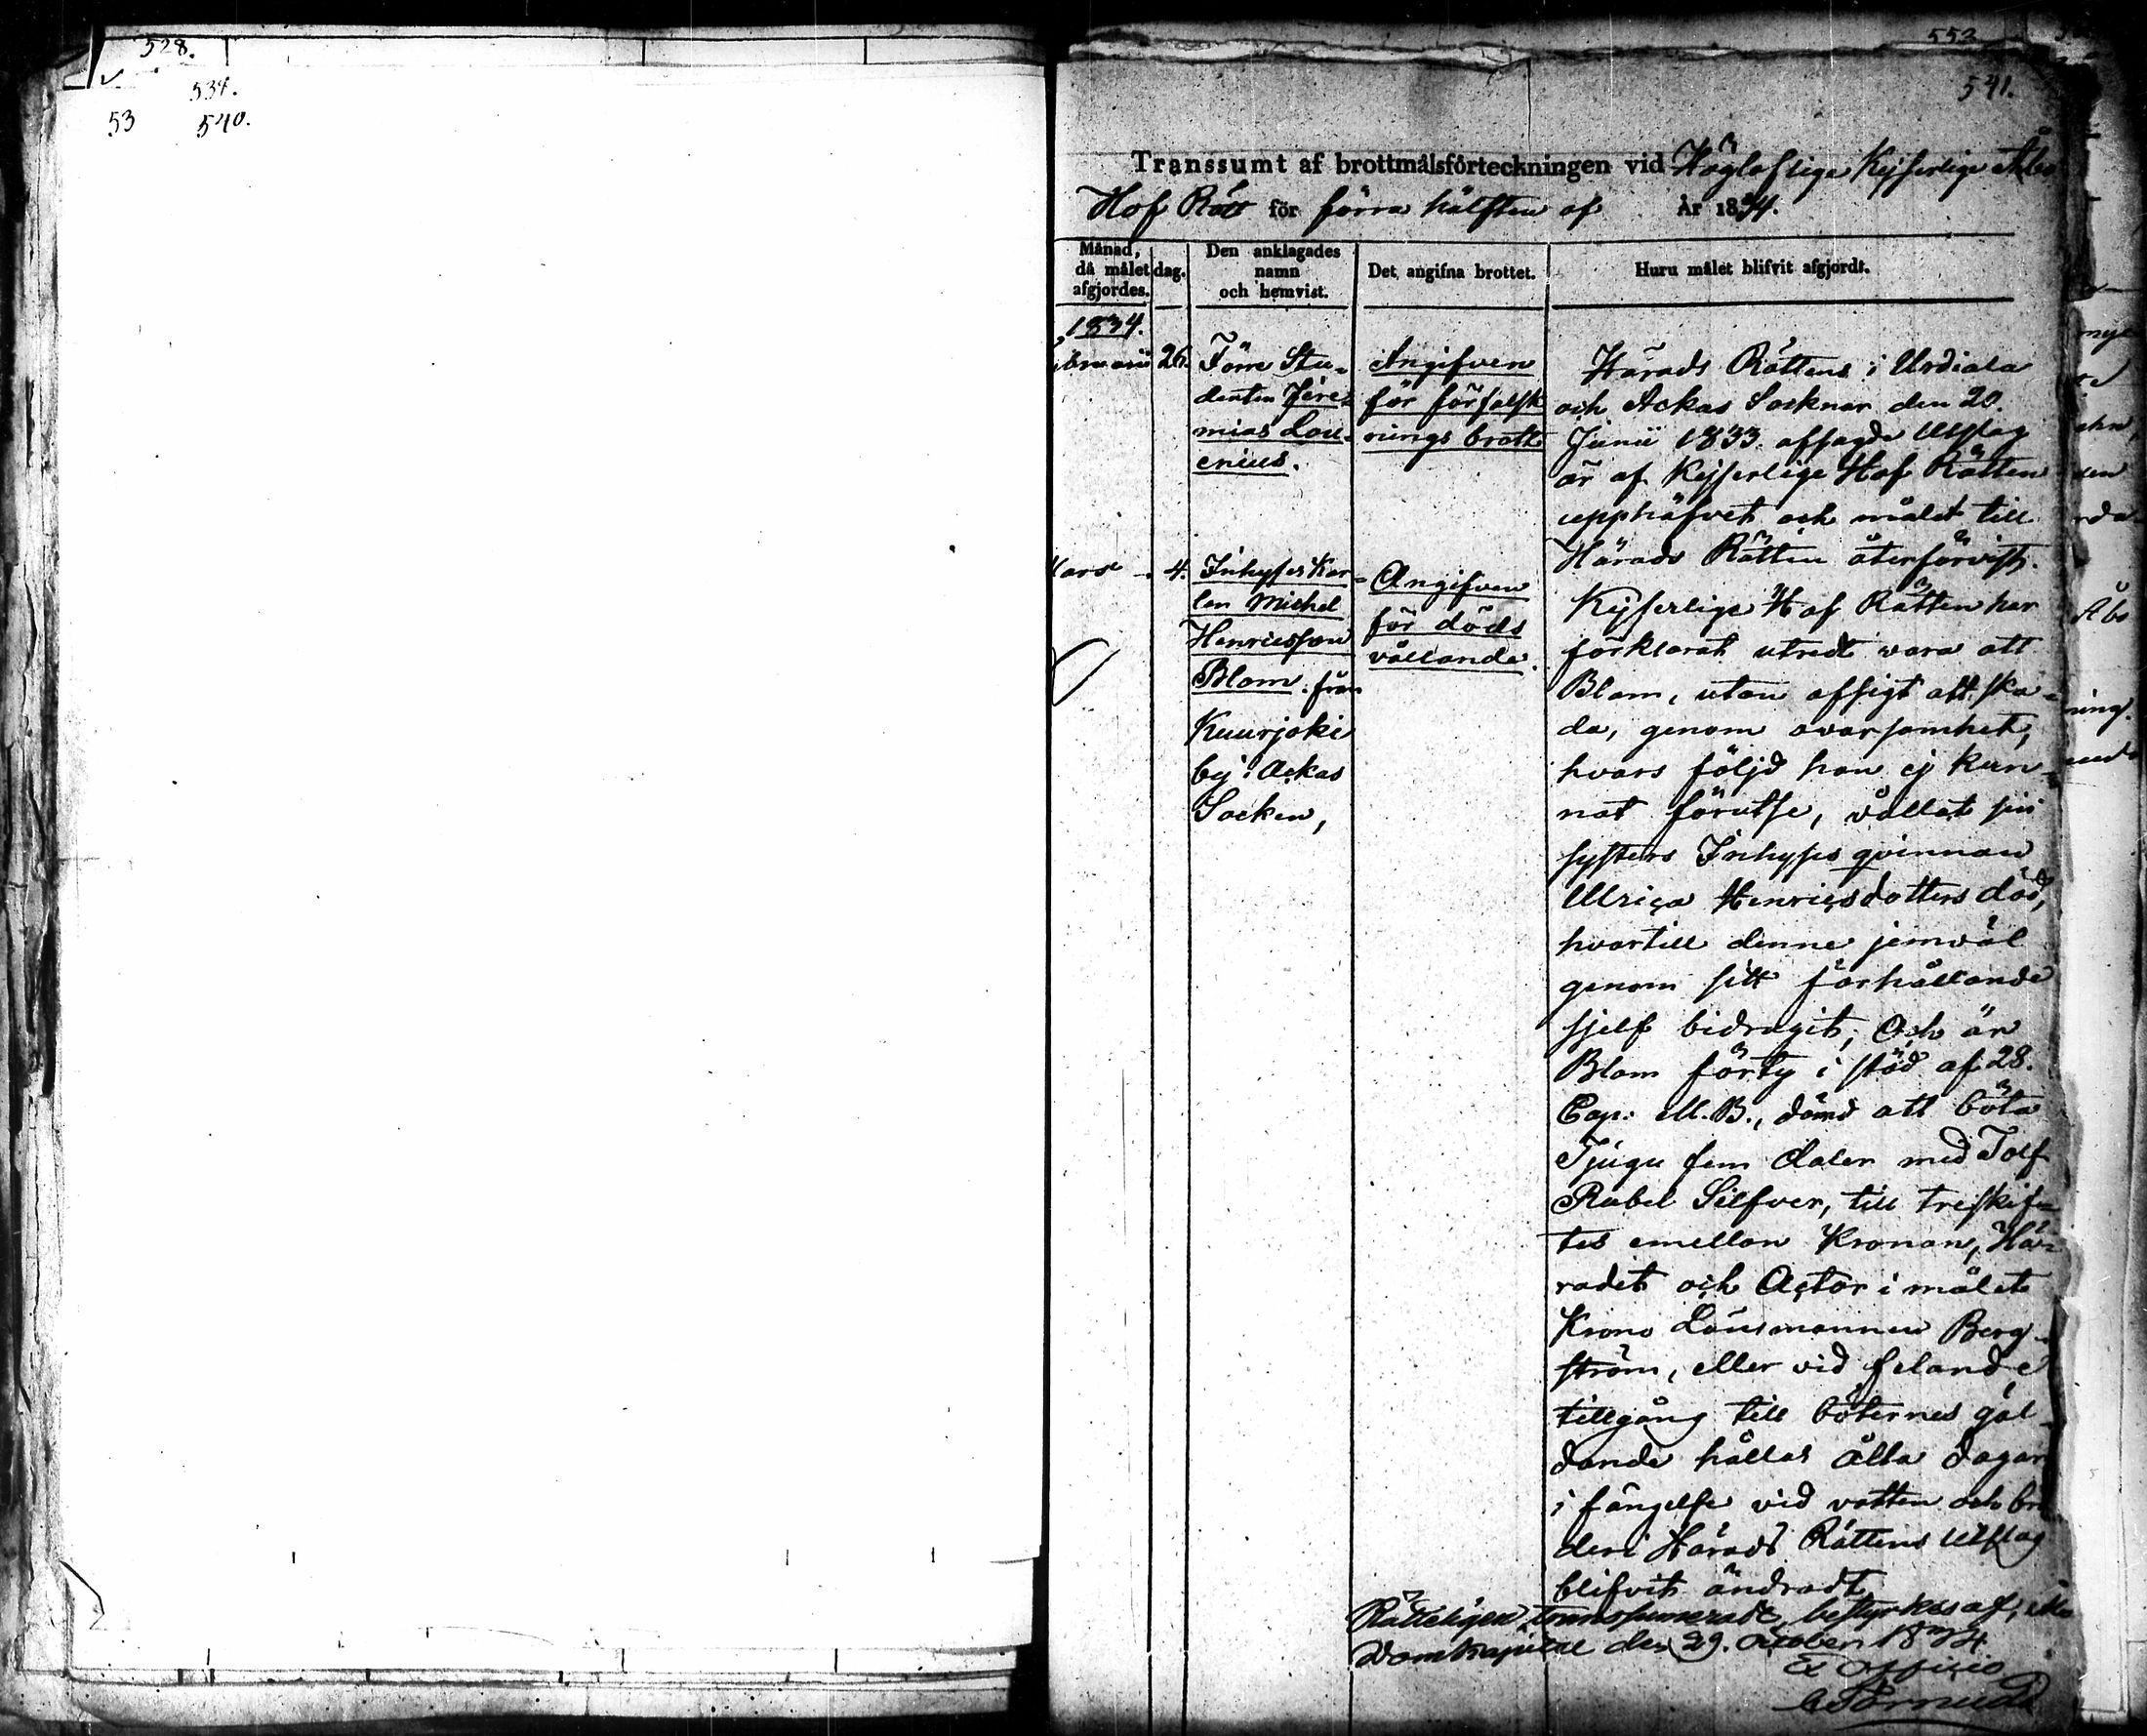 528.
534.
53 540.
553
541.
Transsumt af brottmålsförteckningen vid Högloflige Kejserlige Åbo
Hof Rätt för förra hälften af År 1834.
Månad, då målet afgjordes.
dag.
Den anklagades namn och hemvist.
Det angifna brottet.
Huru målet blifvit afgjordt.
1834.
26.
Förre Stu-
denten Jere-
mias Lou-
enius.
Angifven
för förfalsk
nings brott
Härads Rättens i Urdiala
och Ackas Socknar den 20.
Junii 1833 afsagde Utslag
är af Kejserlige Hof Rätten
upphäfvet och målet till
Härads Rätten återförvist.
4.
Inhyses Kar-
len Michel
Henriesson
Blom från
Kuurjoki
by i Ackas
Socken,
Angifven
för döds
vållande.
Kejserlige Hof Rätten har
förklarat utredt wara att
Blom, utan afsigt att ska-
da, genom ovarsamhet,
hvars följd han ej kun-
nat förutse, vållat sin
systers Inhyses qvinnan
Ulrica Henricsdotters död,
hvartill denne jemväl
genom sitt förhållande
sjelf bidragit; Och är
Blom förty i stöd af 28.
Cap. M.B., dömd att böta
Tjugu fem daler med Tolf
Rubel Silfver, till treskif-
tes emellan Kronan, Hä-
radet och Actor i målet
Krono Länsmannen Berg-
ström, eller vid feland e
tillgång till böternes gäl-
dande hållas åtta dagar
i fängelse vid vatten och brö
den i Härads Rättens Utslag
blifvit ändradt
Rätteligen transsumeradt, bestyrkes af, Åbo
Domkapitel den 29. October 1834
Ex officio